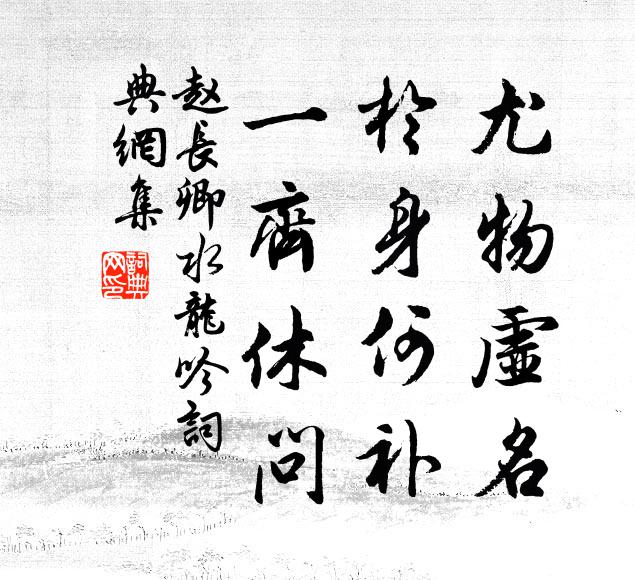 尤物虛名
於身何补
一齊休問
赵長卿水龍吟詞
典網集
詞典网印